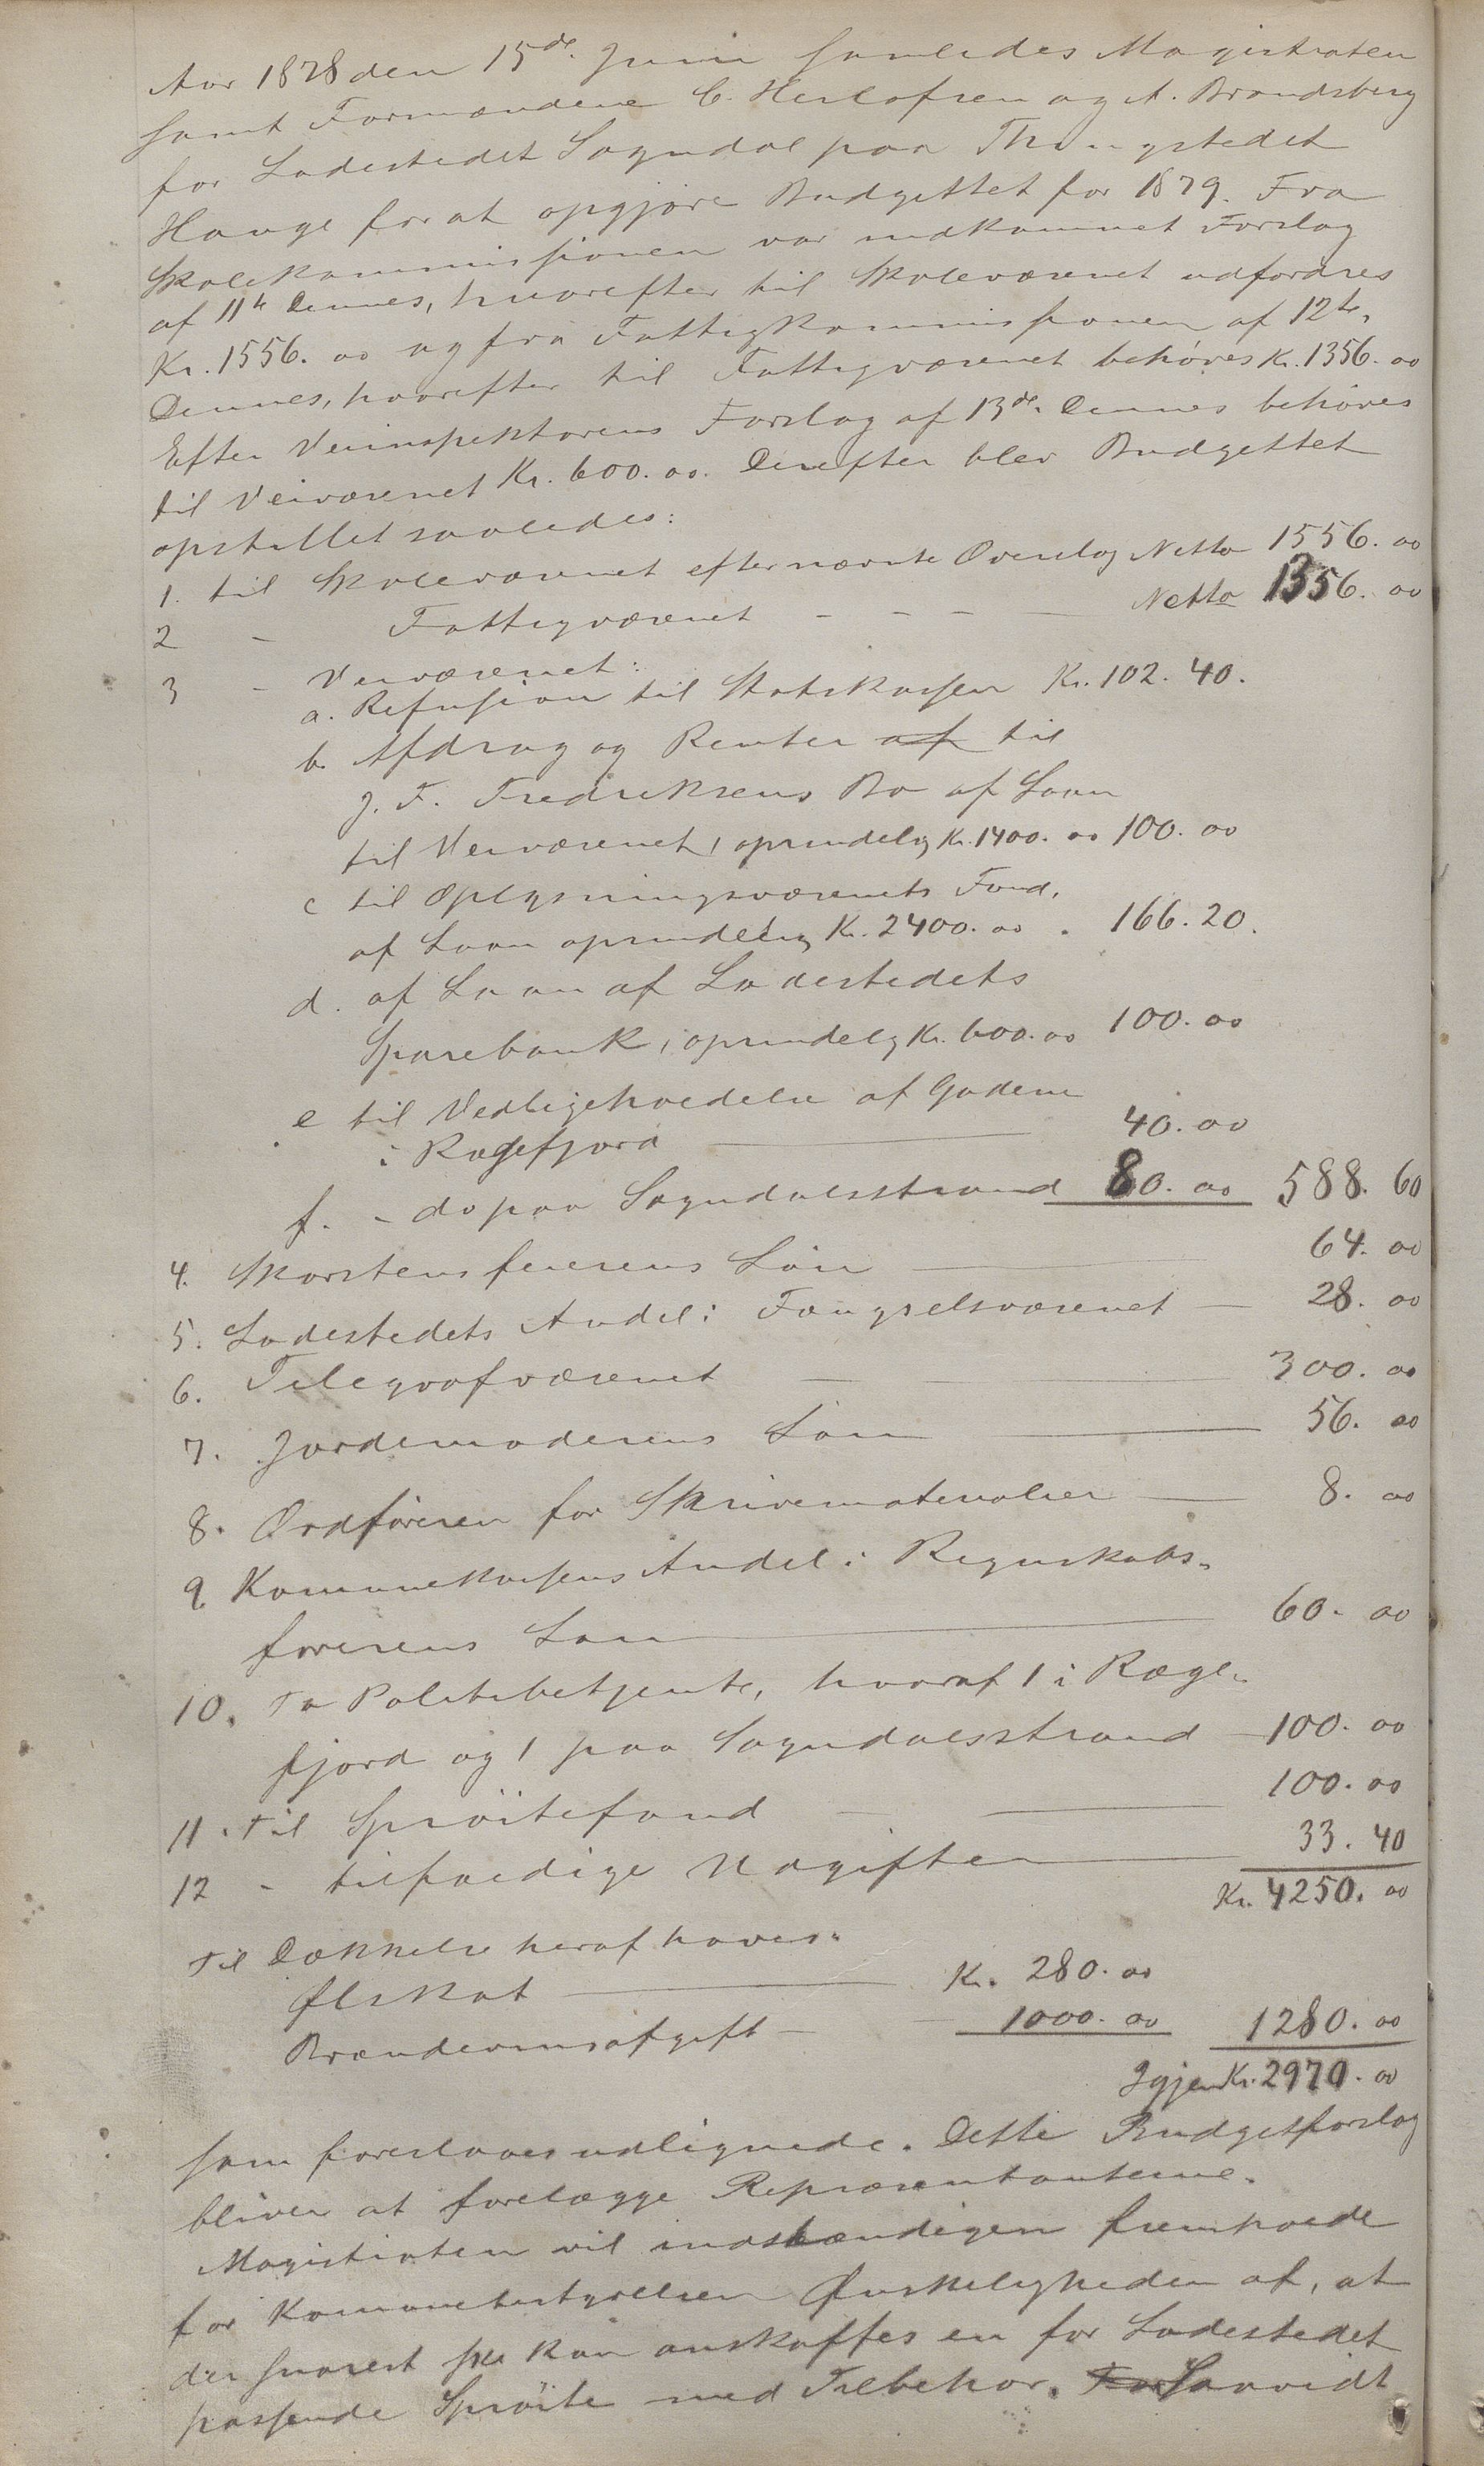 Aar 1878 den 15de Juni samledes Magistraten
samt Formændene C. Herlofsen og A. Brandsberg
for Ladestedet Sogndal paa Thingstedet
Hauge for at opgjøre Budgettet for 1879. Fra
Skolekommissionen var indkommet Forslag
af 11te Dennes, hvorefter til Skolevæsenet udfordres
Kr. 1556.00 og fra Fattigkommissionen af 12te
Dennes, hvorefter til Fattigvæsenet behøves Kr. 1356.00
Efter Veiinspektørens Forslag af 13de Dennes behøves
til Veivæsenet Kr. 600.00. Derefter blev Budgettet
opstillet saaledes:
1. til Skolevæsenet efter nævnte Overslag Netto 1556.00
2 - Fattigvæsenet - - - - Netto 1356.00
3 - Veivæsenet:
a. Refusion til Statskassen Kr. 102.40.
b. Afdrag og Renter af til
J. F. Fredriksens Bo af Laan
til Veivæsenet, oprindelig Kr. 1400.00 100.00
c til Oplysningsvæsenets Fond,
af Laan oprindelig Kr. 2400.00. 166.20.
d. af Laan af Ladestedets
Sparebank, oprindelig Kr. 600.00 100.00
e til Vedligeholdelse af Gaderne
i Rægefjord — 40.00
f. - do paa Sogndalsstrand 80.00 588.60
4. Skorstensfeierens Løn — 64.00
5. Ladestedets Andel i Fængselsvæsenet — 28.00
6. Telegrafvæsenet — 300.00
7. Jordemoderens Løn — 56.00
8. Ordføreren for Skrivematerialier — 8.00
9. Kommunekassens Andel i Regnskabs-
førerens Løn — 60.00
10. To Politibetjente, hvoraf 1 i Ræge-
fjord og 1 paa Sogndalsstrand — 100.00
11. Til Sprøitefond — 100.00
12 - tilfældige Udgifter — 33.40
Kr. 4250.00
Til Dækkelse heraf haves:
Ølskat — Kr. 280.00
Brændevinsafgift — 1000.00 1280.00
Igjen Kr. 2970.00
som foreslaaes udlignede. Dette Budgetforslag
bliver at forelægge Repræsentanterne.
Magistraten vil indstændigen fremholde
for Kommunebestyrelsen Ønskeligheden af, at
der snarest ske kan anskaffes en for Ladestedet
passende Sprøite med Tilbehør. For Saavidt